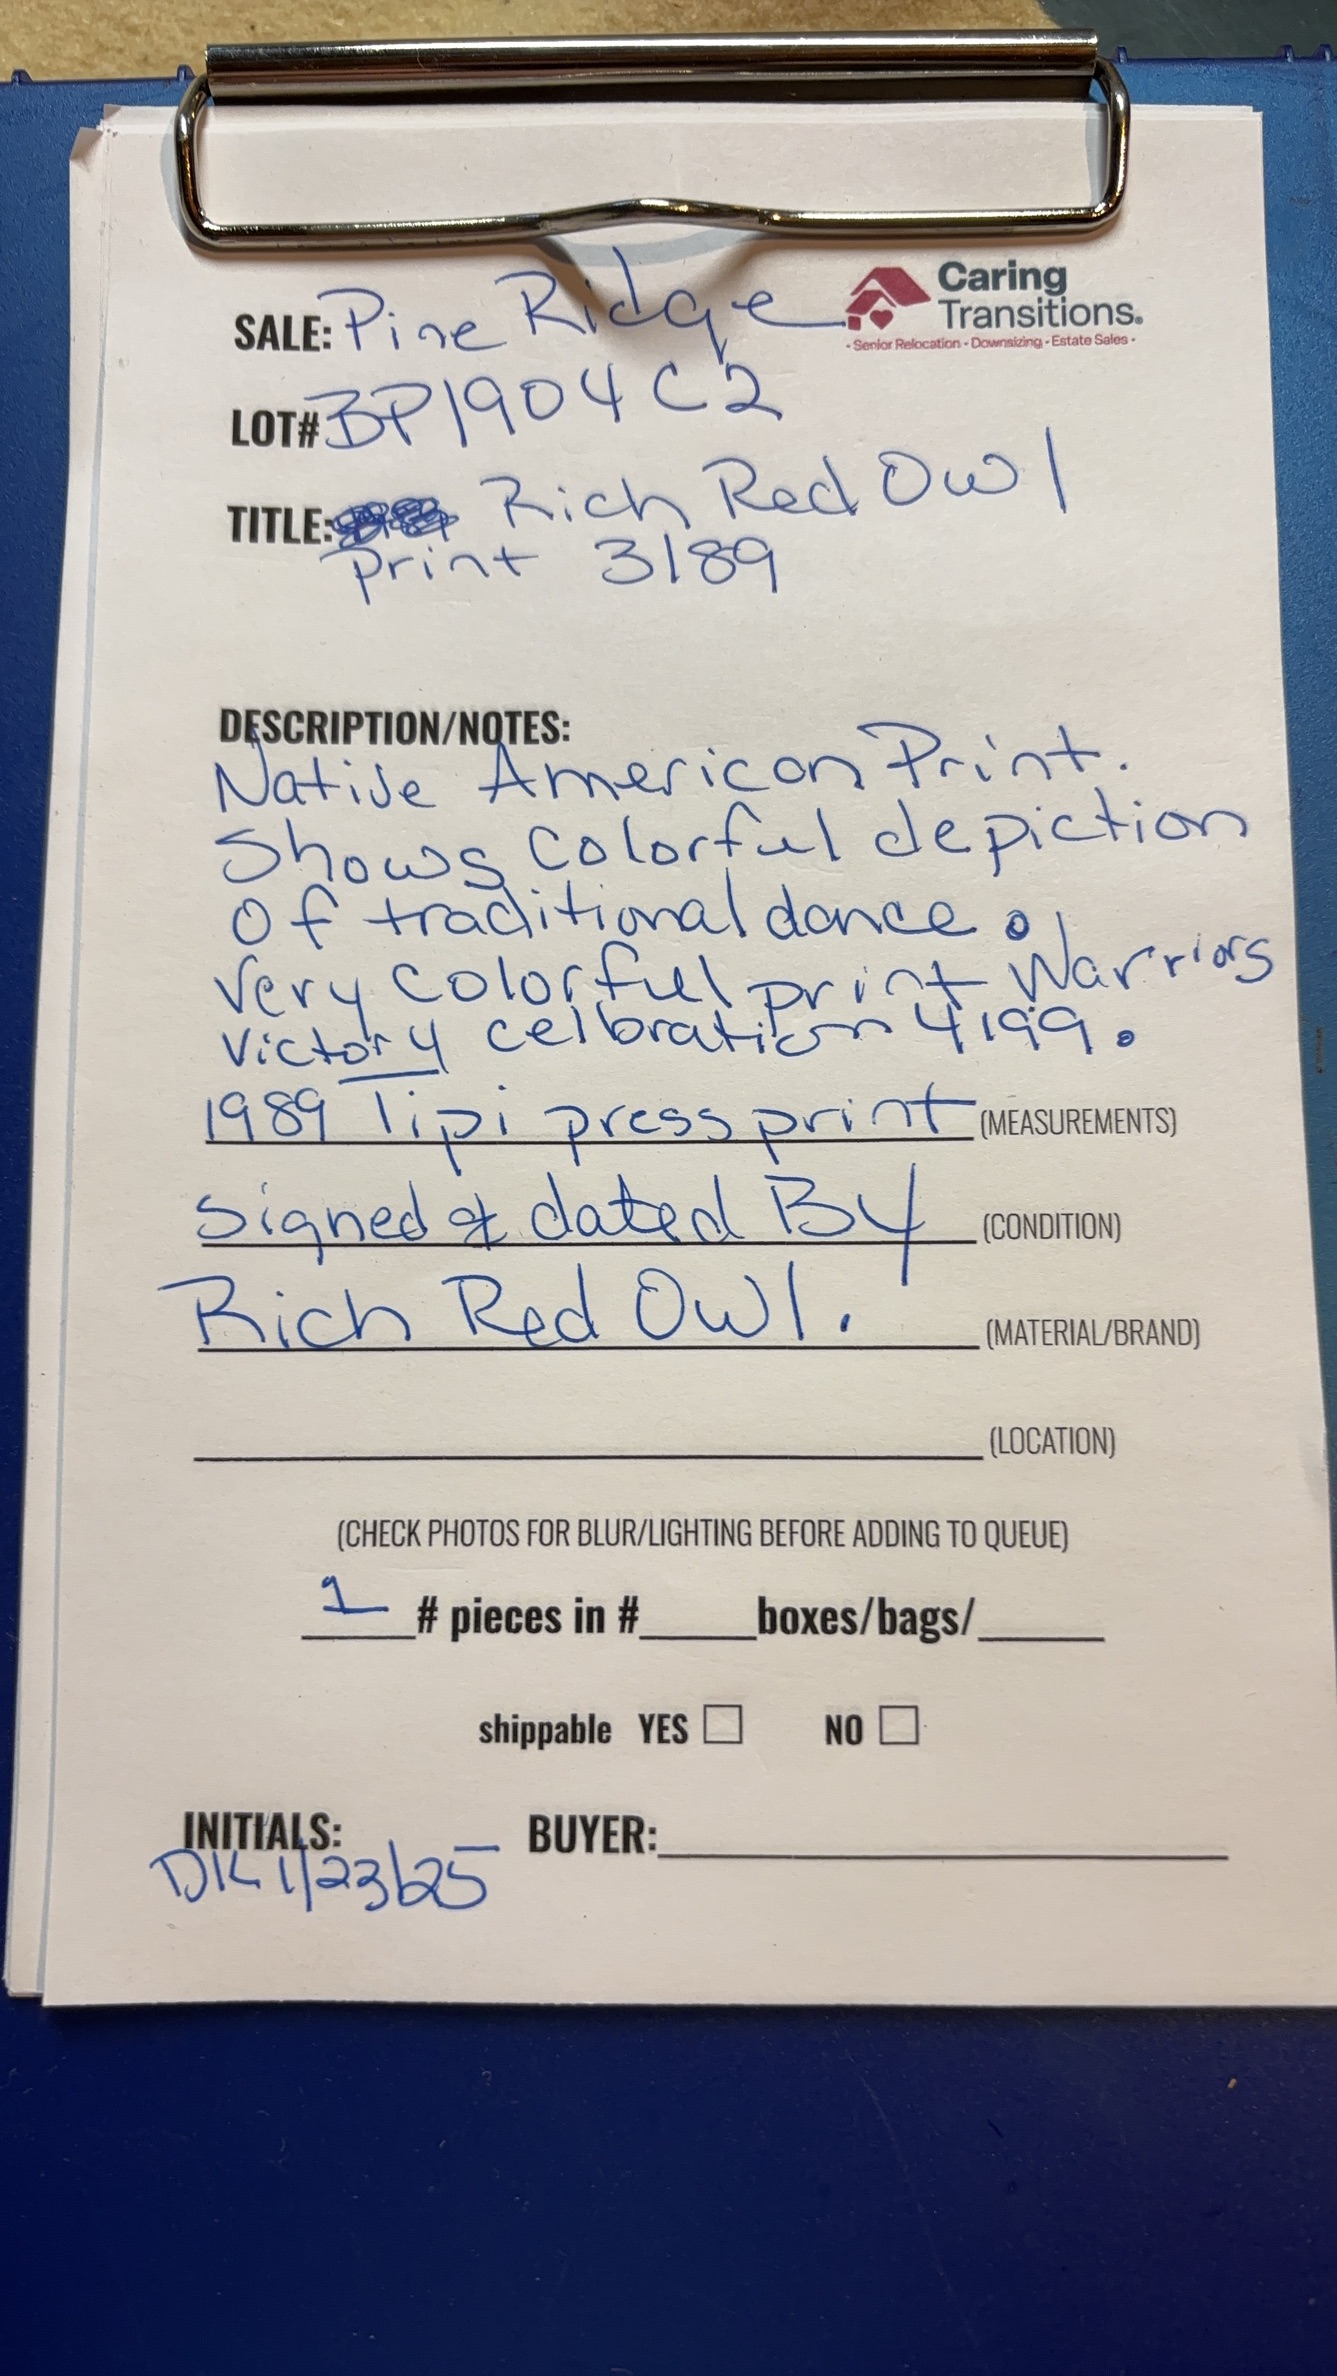 SALE: Pine Ridge
Caring
Transitions.
- Senior Relocation - Downsizing - Estate Sales -
LOT# BP1904C2
TITLE: Rich Red Owl
print 3189
DESCRIPTION/NOTES:
Native American Print.
Shows colorful depiction
of traditional dance.
Very colorful print Warriors
Victory celbration 4199.
1989 Tipi press print (MEASUREMENTS)
signed & dated By (CONDITION)
Rich Red Owl. (MATERIAL/BRAND)
(LOCATION)
(CHECK PHOTOS FOR BLUR/LIGHTING BEFORE ADDING TO QUEUE)
1 # pieces in # boxes/bags/
shippable YES NO
INITIALS: BUYER:
DK 1/23/25